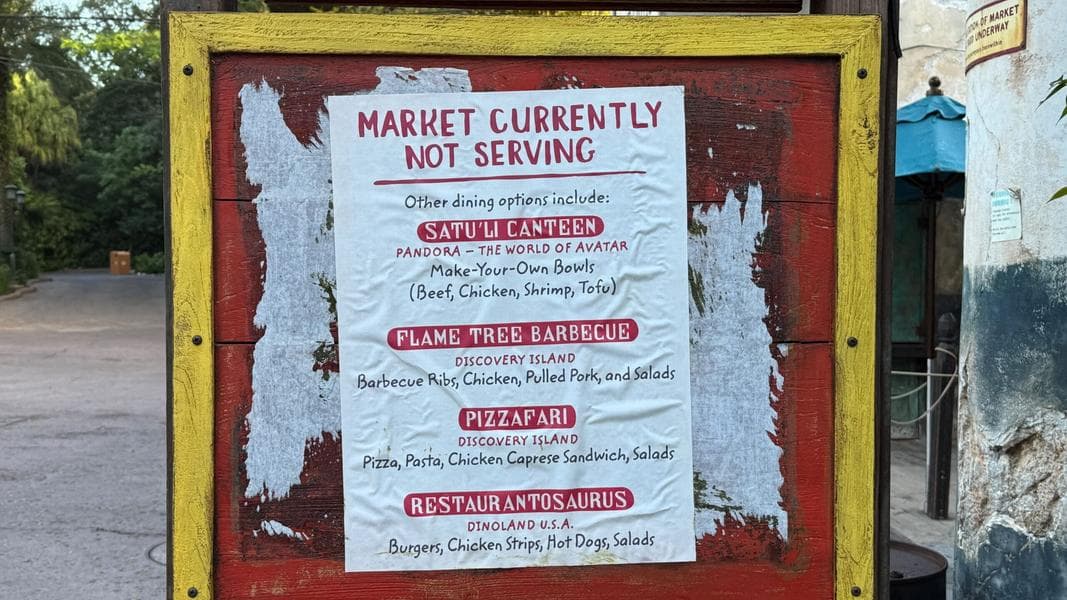 MARKET CURRENTLY
NOT SERVING
Other dining options include:
SATU'LI CANTEEN
PANDORA – THE WORLD OF AVATAR
Make-Your-Own Bowls
(Beef, Chicken, Shrimp, Tofu)
FLAME TREE BARBECUE
DISCOVERY ISLAND
Barbecue Ribs, Chicken, Pulled Pork, and Salads
PIZZAFARI
DISCOVERY ISLAND
Pizza, Pasta, Chicken Caprese Sandwich, Salads
RESTAURANTOSAURUS
DINOLAND U.S.A.
Burgers, Chicken Strips, Hot Dogs, Salads
OF MARKET
UNDERWAY